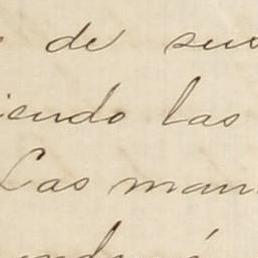 de sus
iendo las
Las man